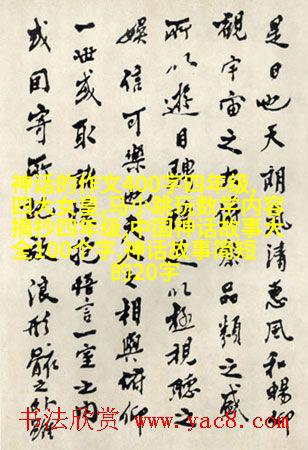 是日也天朗氣清惠風和暢仰
觀宇宙之大俯察品類之盛
所以遊目騁懷足以極視聽之
娛信可樂也夫人之相與俯仰
一世或取諸懷抱悟言一室之內
或因寄所託放浪形骸之外雖
神话的作文400字四年级,
四大女皇,马小跳玩数学内容
摘抄四年级,中国神话故事大
全100个字,神话故事简短
的20字
书法欣赏 www.yac8.com